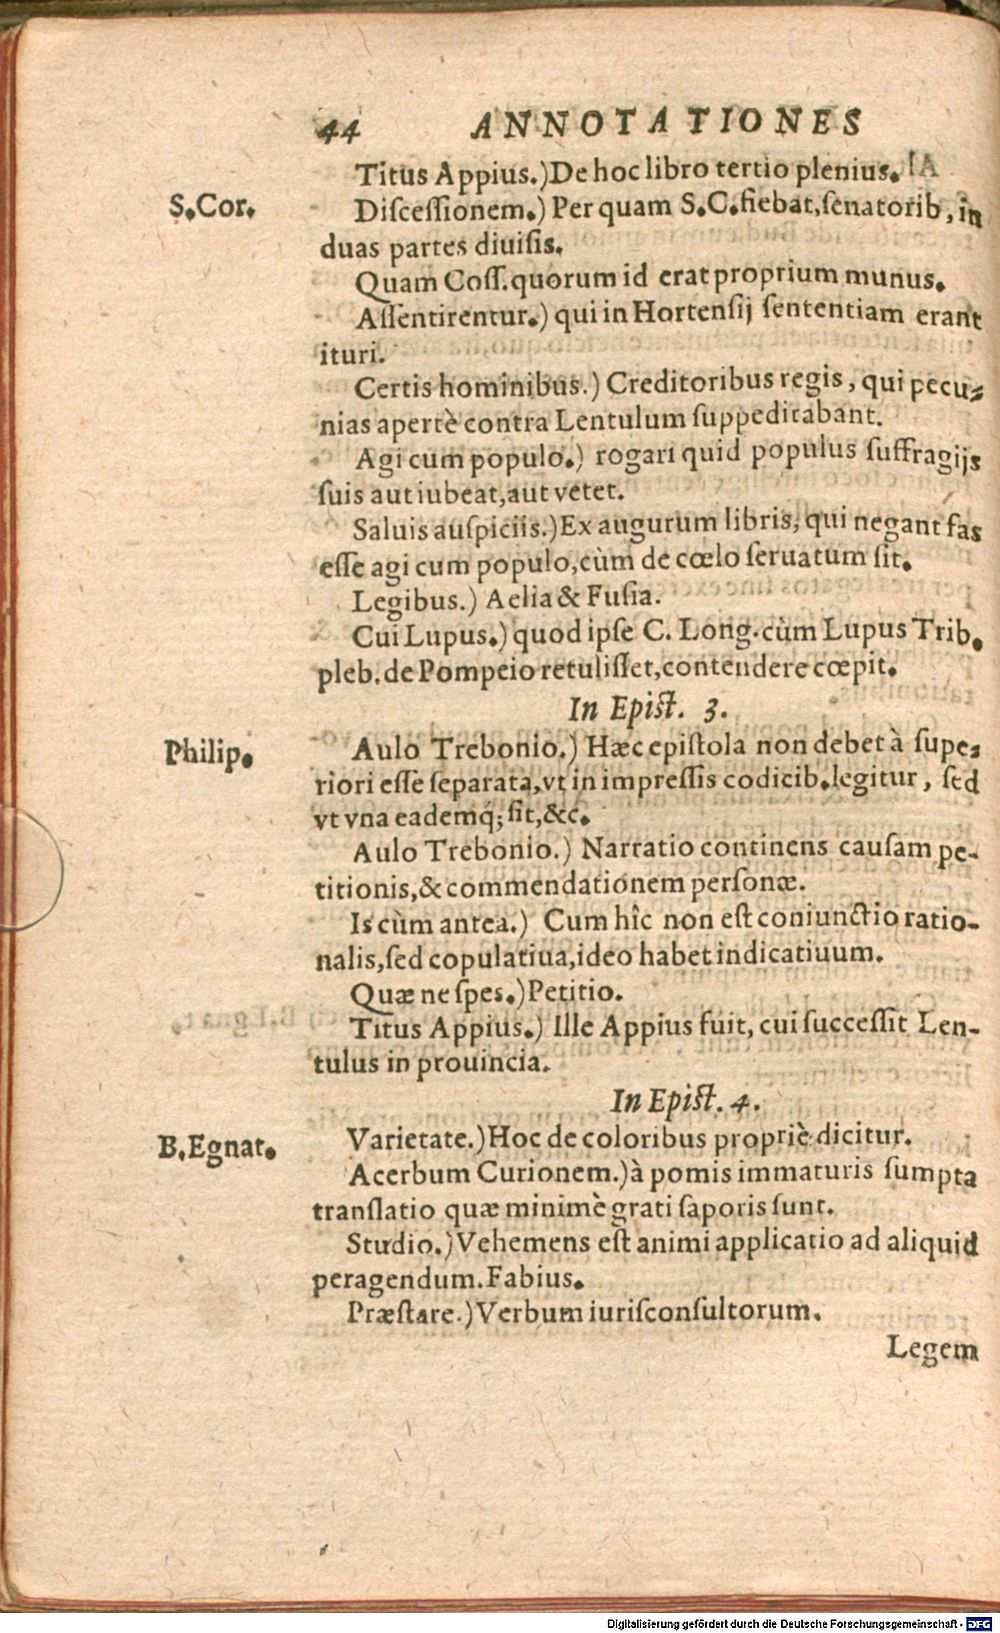 44 ANNOTATIONES
Titus Appius.) De hoc libro tertio plenius.
S.Cor. Diſceſſionem.) Per quam S.C. fiebat, ſenatorib, in
duas partes diuiſis.
Quam Coſſ. quorum id erat proprium munus.
Aſſentirentur.) qui in Hortenſij ſententiam erant
ituri.
Certis hominibus.) Creditoribus regis, qui pecu-
nias apertè contra Lentulum ſuppeditabant.
Agi cum populo.) rogari quid populus ſuffragijs
ſuis aut iubeat, aut vetet.
Saluis auſpiciis.) Ex augurum libris, qui negant fas
eſſe agi cum populo, cùm de cœlo ſeruatum ſit.
Legibus.) Aelia & Fuſia.
Cui Lupus.) quod ipſe C. Long. cùm Lupus Trib.
pleb. de Pompeio retuliſſet, contendere cœpit.
In Epiſt. 3.
Philip. Aulo Trebonio.) Hæc epiſtola non debet à ſupe-
riori eſſe ſeparata, vt in impreſſis codicib. legitur, ſed
vt vna eademq́; ſit, &c.
Aulo Trebonio.) Narratio continens cauſam pe-
titionis, & commendationem perſonæ.
Is cùm antea.) Cum hîc non eſt coniunctio ratio-
nalis, ſed copulatiua, ideo habet indicatiuum.
Quæ ne ſpes.) Petitio.
Titus Appius.) Ille Appius fuit, cui ſucceſſit Len-
tulus in prouincia.
In Epiſt. 4.
B.Egnat. Varietate.) Hoc de coloribus propriè dicitur.
Acerbum Curionem.) à pomis immaturis ſumpta
translatio quæ minimè grati ſaporis ſunt.
Studio.) Vehemens eſt animi applicatio ad aliquid
peragendum. Fabius.
Præſtare.) Verbum iurisconſultorum.
Legem
Digitalisierung gefördert durch die Deutsche Forschungsgemeinschaft - DFG